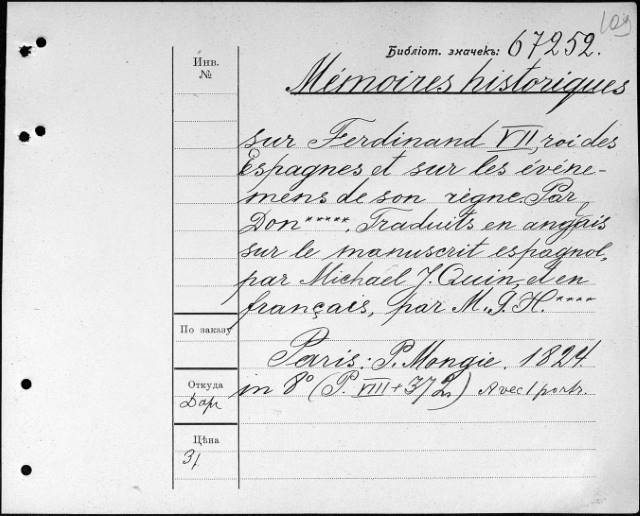 109
Библіот. значекъ: 67252.
Инв.
№
Mémoires historiques
sur Ferdinand VII, roi des
Espagnes et sur les événe-
mens de son règne. Par
Don*****. Traduits en anglais
sur le manuscrit espagnol,
par Michael J. Quin, et en
français, par M. G. H.****
По заказу
Paris: P. Mongie. 1824.
in 8° (P. VIII + 372.) Avec 1 portr.
Откуда
Дар
Цѣна
3,